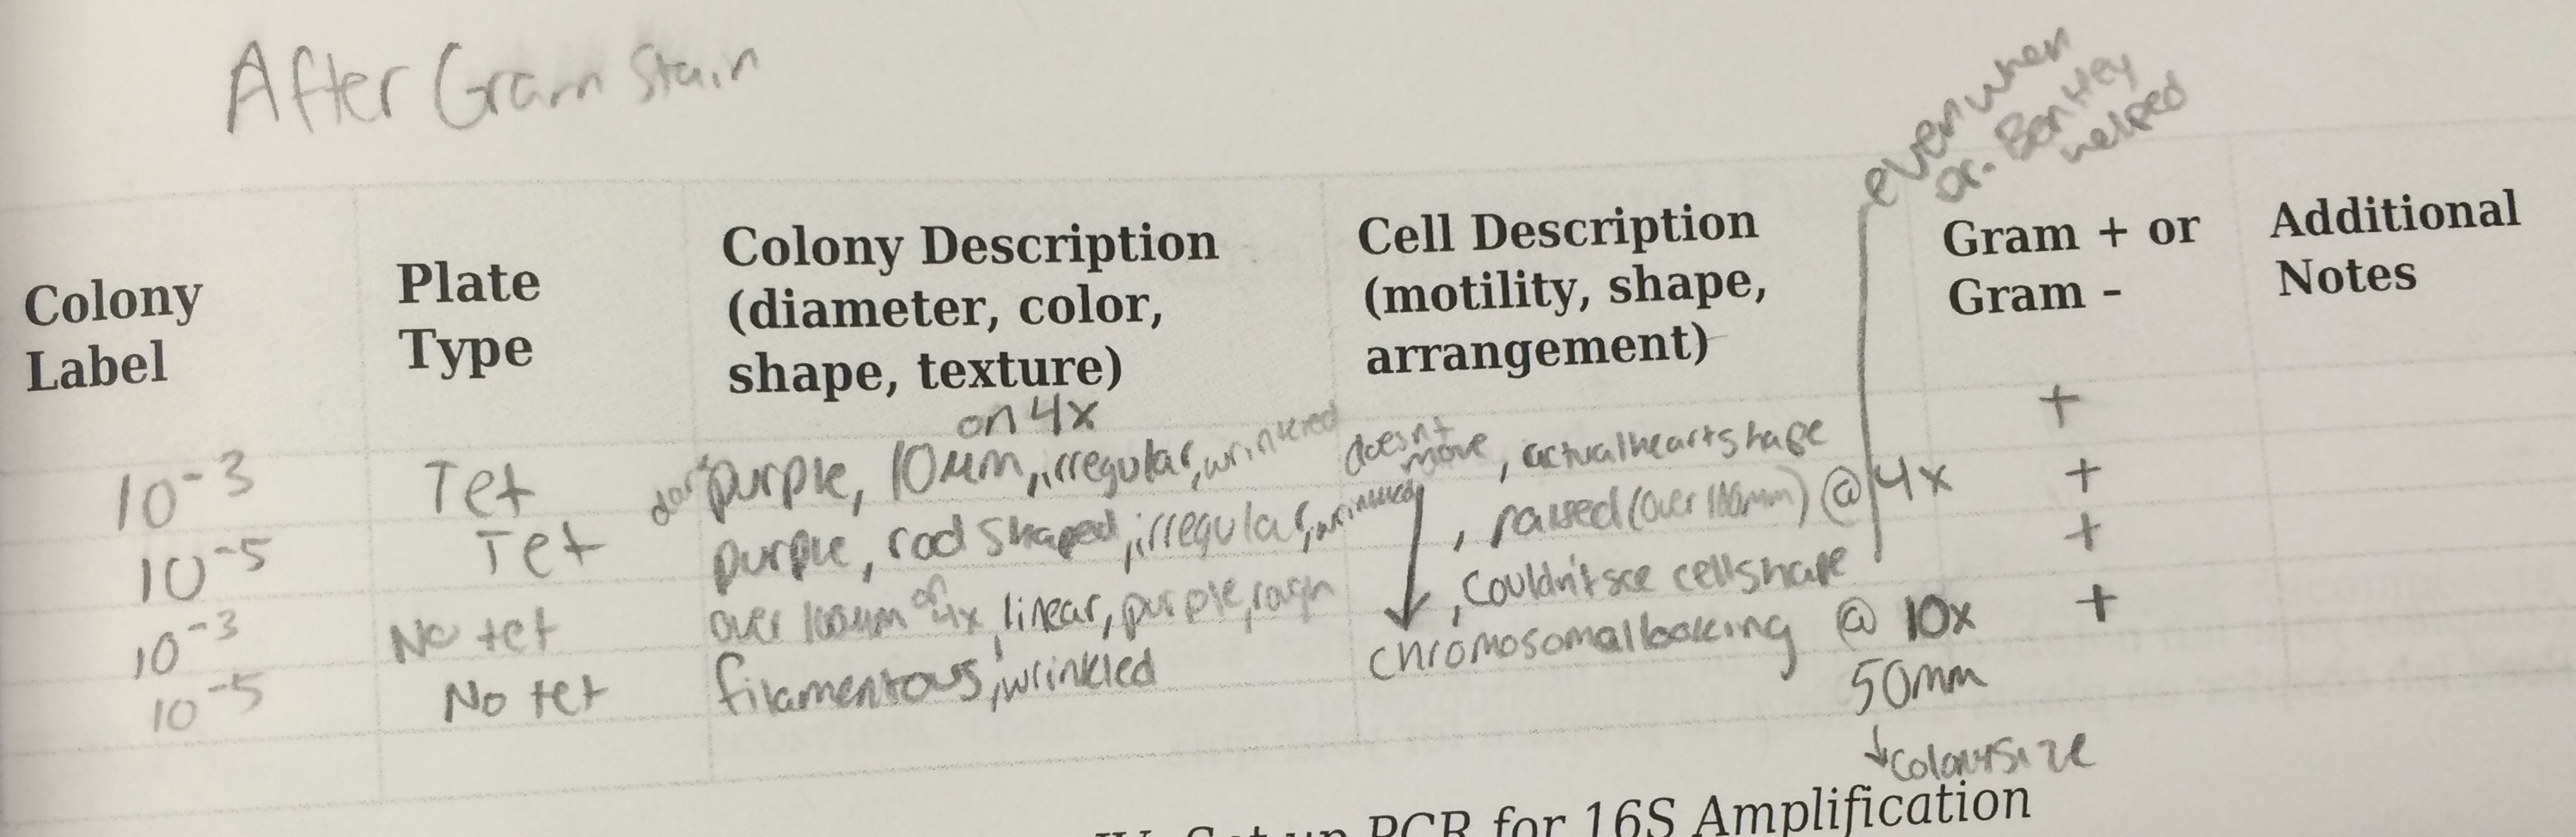 After Gram Stain
even when
Dr. Bentley
helped
Colony
Label
Plate
Type
Colony Description
(diameter, color,
shape, texture)
Cell Description
(motility, shape,
arrangement)
Gram + or
Gram -
Additional
Notes
on 4x
10⁻³ Tet dark purple, 10µm, irregular, wrinkled doesn't move, actual heart shape +
10⁻⁵ Tet purple, rod shaped, irregular, wrinkled , raised (over 100mm) @ 4x +
10⁻³ No tet over 100µm on 4x, linear, purple, rough , couldn't see cell shape +
10⁻⁵ No tet filamentous, wrinkled chromosomal looking @ 10x +
50mm
↓ colony size
PCR for 16S Amplification